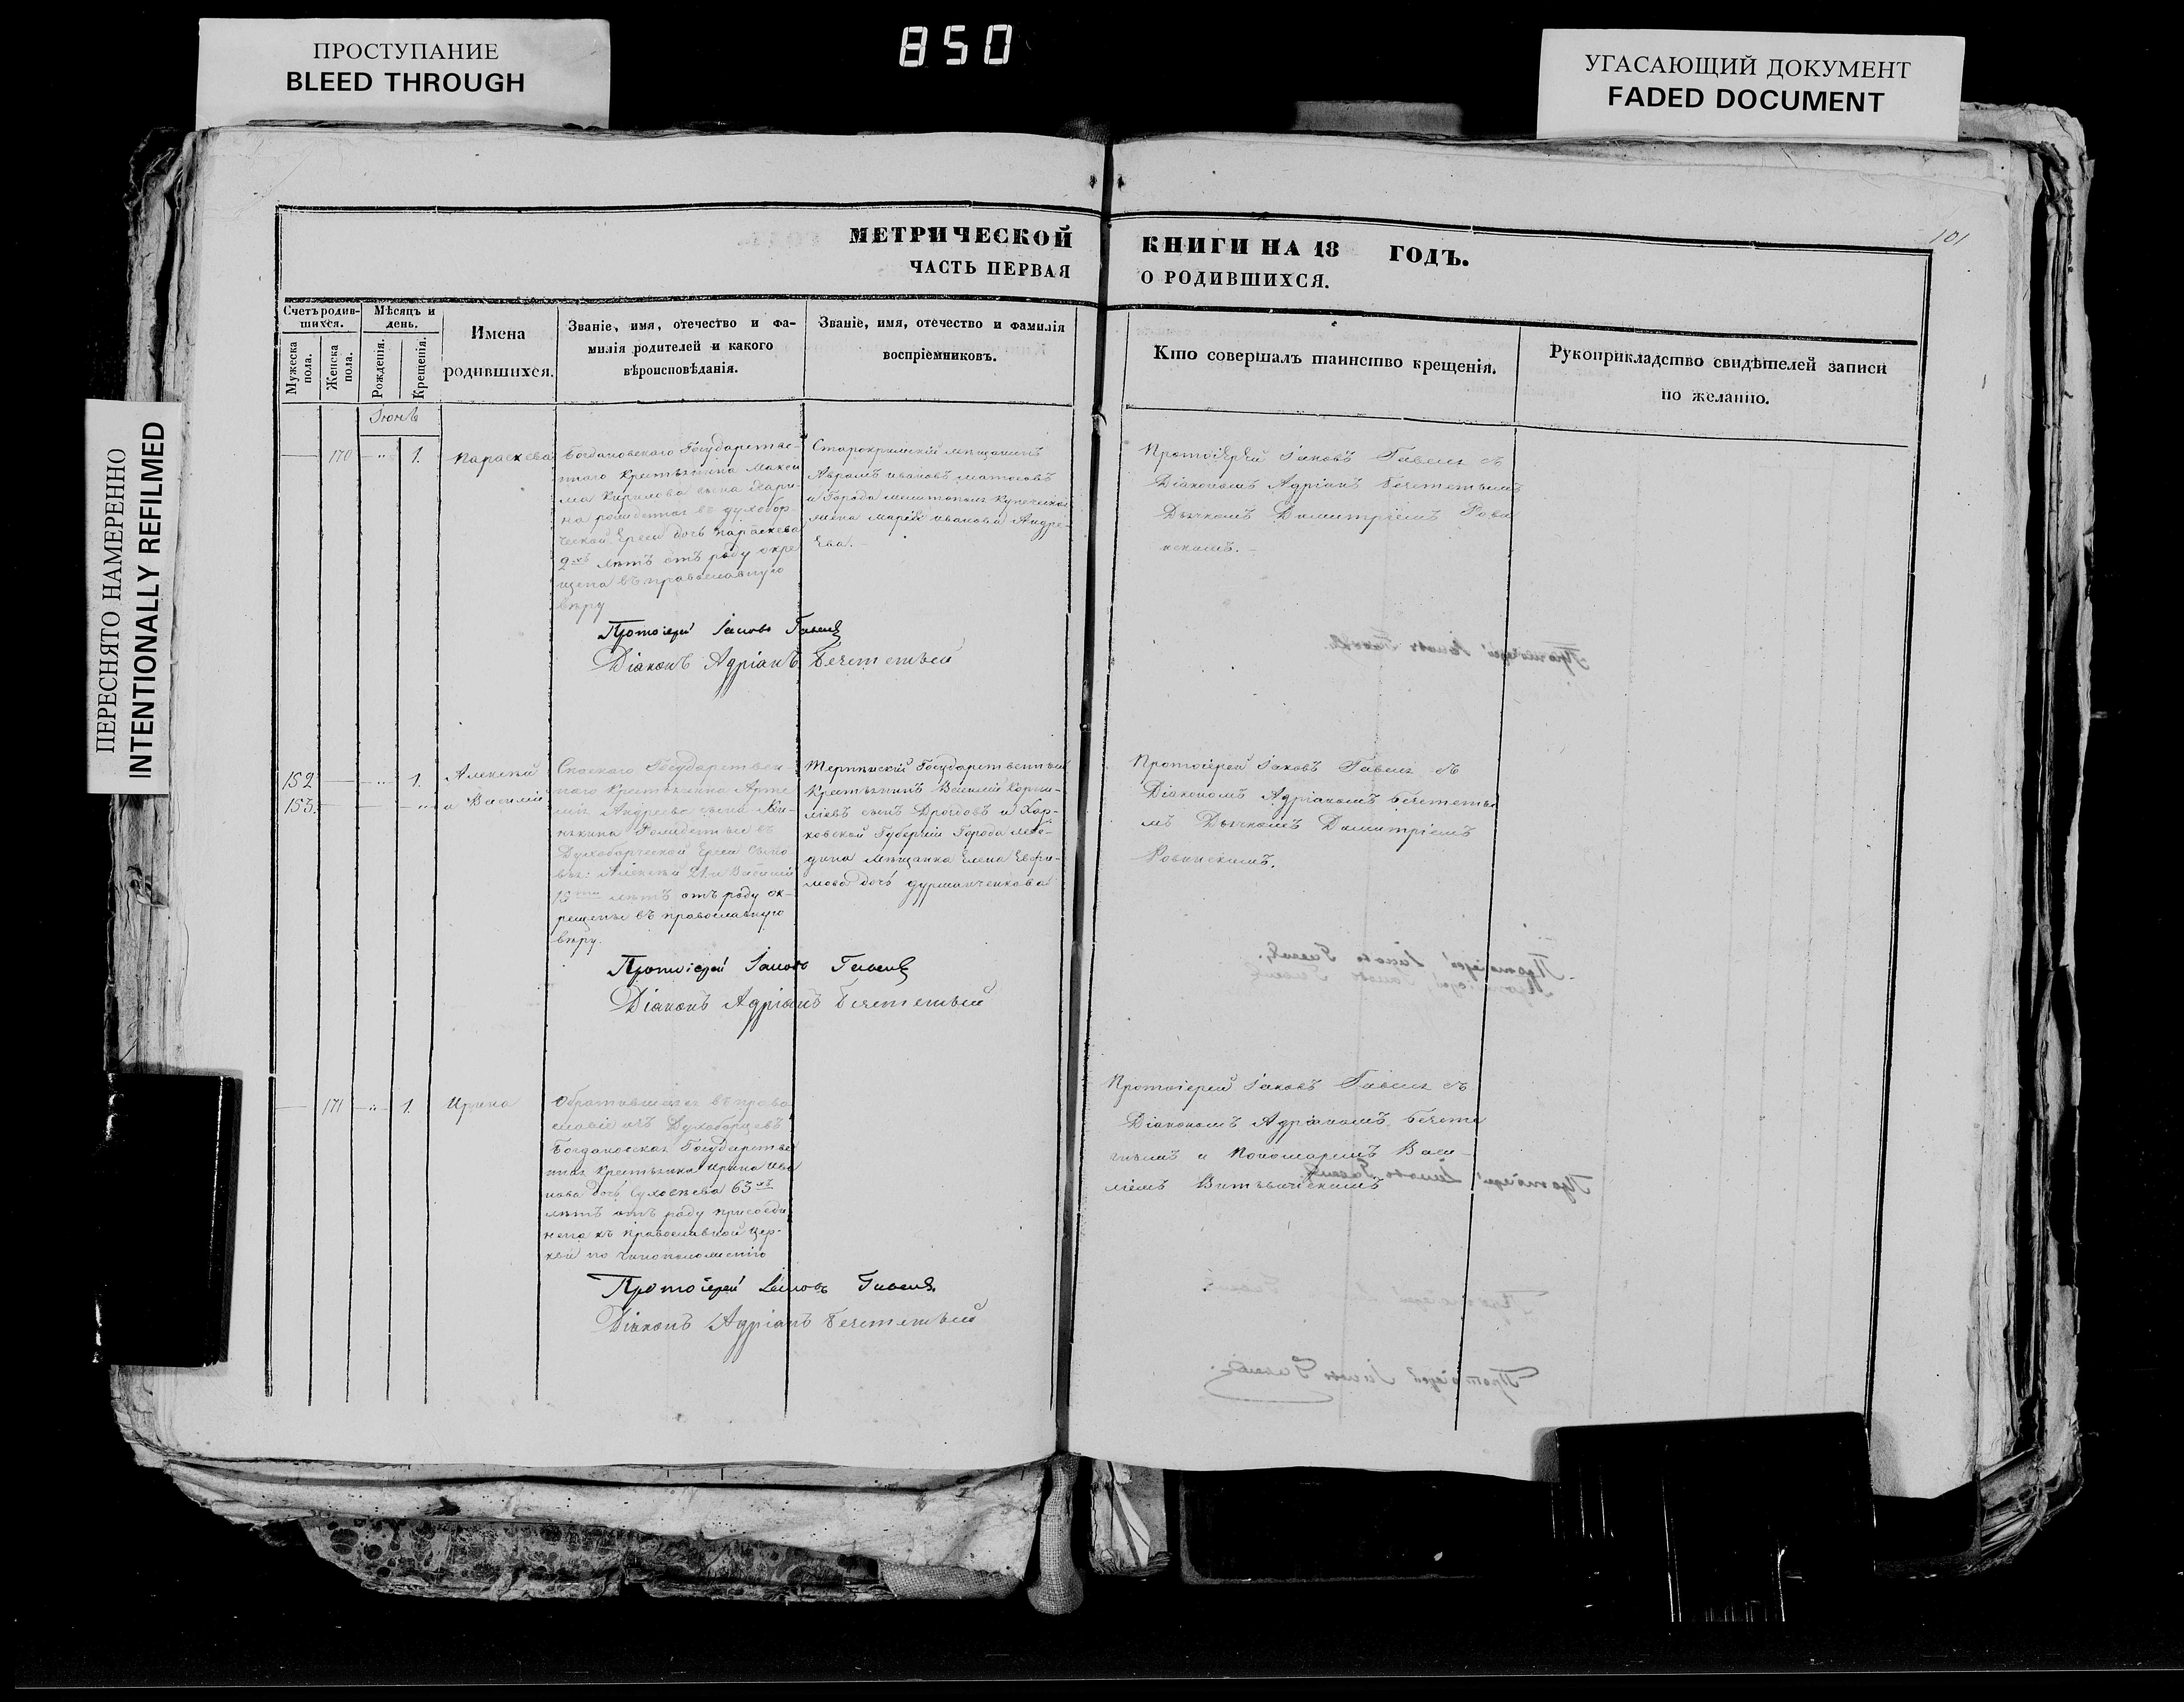 ПРОСТУПАНИЕ
BLEED THROUGH
850
УГАСАЮЩИЙ ДОКУМЕНТ
FADED DOCUMENT
ПЕРЕСНЯТО НАМЕРЕННО
INTENTIONALLY REFILMED
101
МЕТРИЧЕСКОЙ КНИГИ НА 18 ГОДЪ.
ЧАСТЬ ПЕРВАЯ О РОДИВШИХСЯ.
Счетъ родив-
шихся.
Мужеска
пола.
Женска
пола.
Мѣсяцъ и
день.
Рожденія.
Крещенія.
Имена
родившихся.
Званіе, имя, отечество и фа-
милія родителей и какого
вѣроисповѣданія.
Званіе, имя, отечество и фамилія
воспріемниковъ.
Кто совершалъ таинство крещенія.
Рукоприкладство свидѣтелей записи
по желанію.
Іюнь
170
1.
Параскева
Богдановскаго Государстве-
ннаго Крестьянина Макси
ма Кирилова сына
на рожденная въ духобор-
ческой Ереси дочь Параскева
лѣтъ отъ роду окре
щена въ православную
вѣру
Старокримскій мѣщанинъ
Аврамъ Ивановъ
и Города Мелитополя Купеческая
жена Марія Иванова Андре-
ева.
Протоіерей Іаковъ съ
Діакономъ Адріаномъ
Дьячкомъ Димитріемъ Рови
нскимъ.
Протоіерей Іаковъ
Діаконъ Адріанъ
152
153.
1.
Алексѣй
и Василій
Спаскаго Государствен-
наго Крестьянина Арте
мія Андреева сына
рожденные въ
Духоборческой Ереси сыно
вья: Алексѣй 21 и Василій
лѣтъ отъ роду ок-
рещены въ православную
вѣру.
Терпинскій Государственный
Крестьянинъ Василій Корни-
ліевъ сынъ Дроздовъ и Хар-
ковской Губерніи Города Лебе-
дина мѣщанка Елена Евфи-
мова дочь
Протоіерей Іаковъ съ
Діакономъ Адріаномъ
мъ Дьячкомъ Димитріемъ
Ровинскимъ.
Протоіерей Іаковъ
Діаконъ Адріанъ
171
1.
Ирина
Обратившаяся въ право
славіе изъ Духоборцевъ
Богдановская Государстве
нная Крестьянка Ирина Ива
нова дочь 63хъ
лѣтъ отъ роду присоеди
нена къ православной Цер-
кви по чиноположенію
Протоіерей Іаковъ съ
Діакономъ Адріаномъ
и Пономаремъ Васи-
ліемъ
Протоіерей Іаковъ
Діаконъ Адріанъ